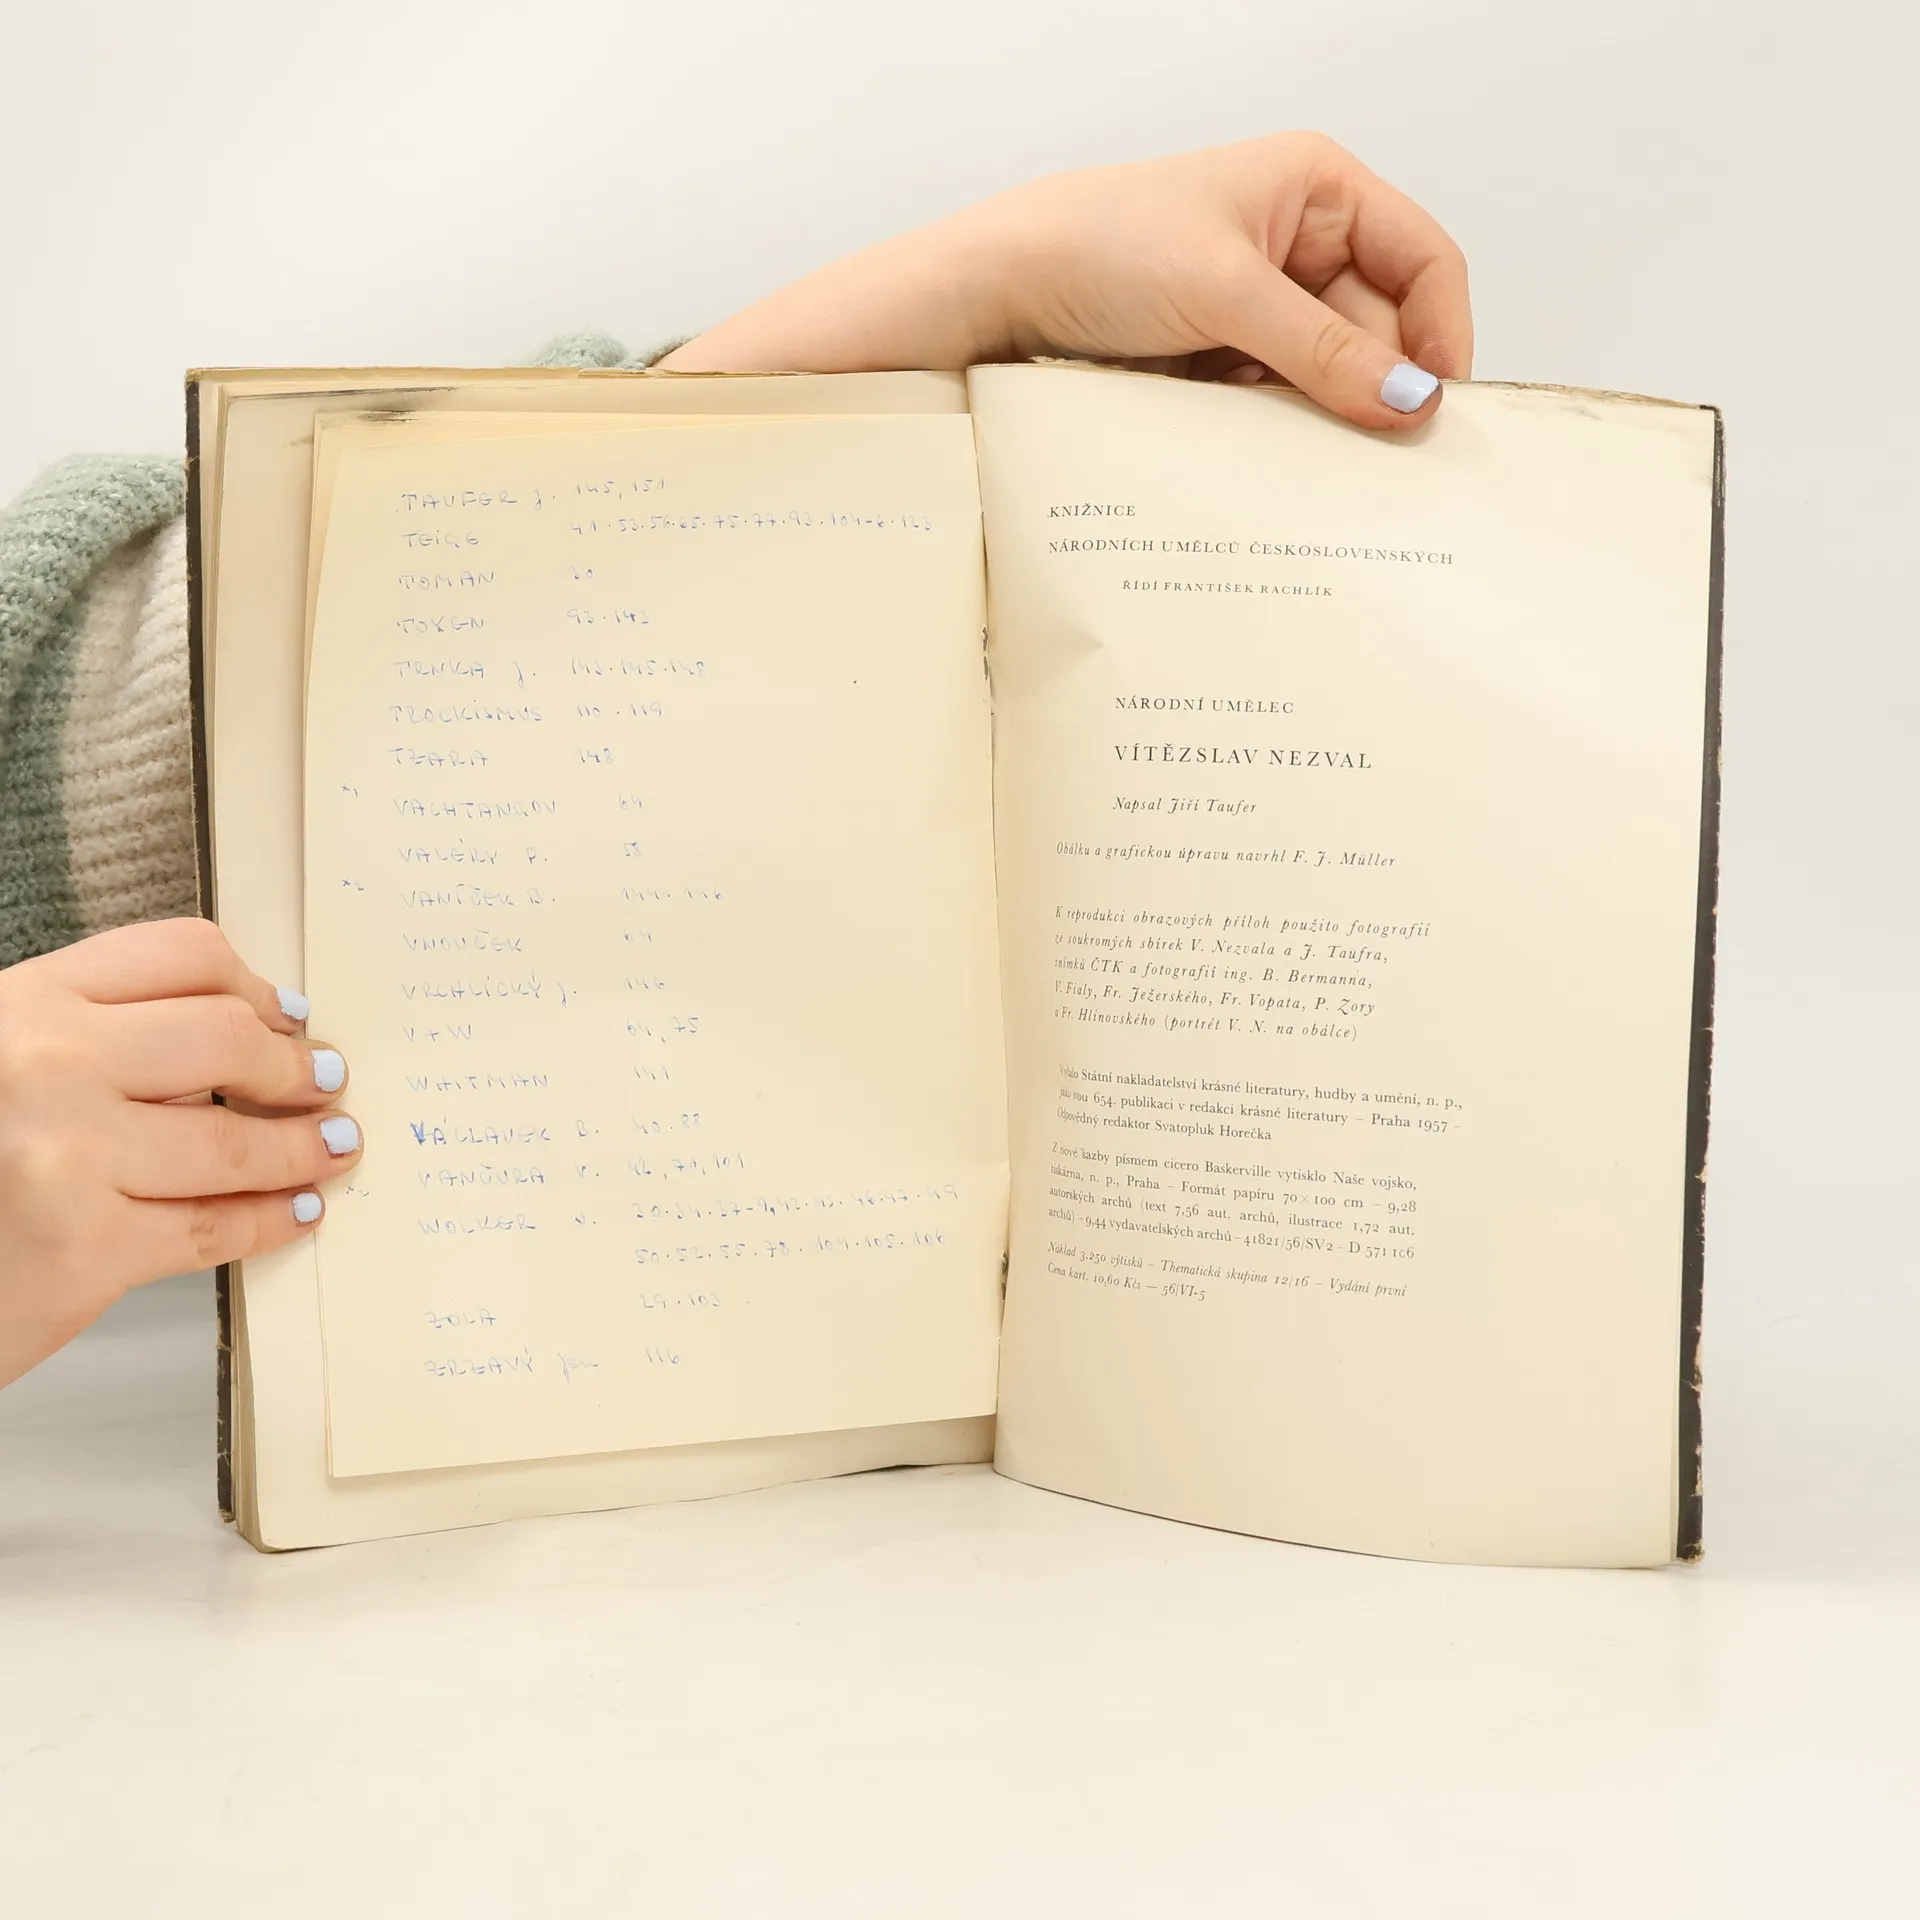 TAUFER J. 145, 151
TEIGE 41·53·56·65·75·77·93·104-6·123
TOMAN 30
TOYEN 93·143
TRNKA J. 143·145·148
TROCKISMUS 110·119
TZARA 148
x1
VACHTANGOV 64
VALÉRY P. 58
x2
VANÍČEK B. 144·146
VNOUČEK 64
VRCHLICKÝ J. 146
V+W 64, 75
WHITMAN 141
VÁCLAVEK B. 40·88
VANČURA V. 42, 71, 101
x2
WOLKER 30·34·37-9,42·45·46·47·49
50·52·55·78·104·105·106
ZOLA 29·103
ZRZAVÝ Jan 116
KNIŽNICE
NÁRODNÍCH UMĚLCŮ ČESKOSLOVENSKÝCH
ŘÍDÍ FRANTIŠEK RACHLÍK
NÁRODNÍ UMĚLEC
VÍTĚZSLAV NEZVAL
Napsal Jiří Taufer
Obálku a grafickou úpravu navrhl F. J. Müller
K reprodukci obrazových příloh použito fotografií
ze soukromých sbírek V. Nezvala a J. Taufra,
snímků ČTK a fotografií ing. B. Bermanna,
V. Fialy, Fr. Ježerského, Fr. Vopata, P. Zory
a Fr. Hlinovského (portrét V. N. na obálce)
Vydalo Státní nakladatelství krásné literatury, hudby a umění, n. p.,
jako svou 654. publikaci v redakci krásné literatury – Praha 1957 –
Odpovědný redaktor Svatopluk Horečka
Z nové sazby písmem cicero Baskerville vytisklo Naše vojsko,
tiskárna, n. p., Praha – Formát papíru 70×100 cm – 9,28
autorských archů (text 7,56 aut. archů, ilustrace 1,72 aut.
archů) – 9,44 vydavatelských archů – 41821/56/SV2 – D 571 106
Náklad 3.250 výtisků – Thematická skupina 12/16 – Vydání první
Cena kart. 10,60 Kčs — 56/VI-5